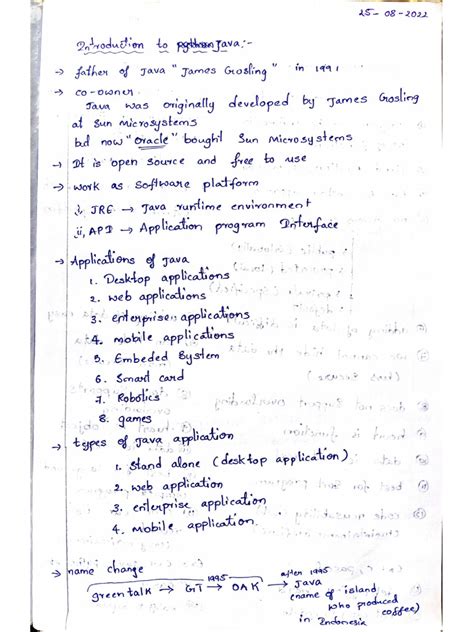 25-08-2022
Introduction to python Java:-
→ father of Java "James Gosling" in 1991
→ co-owner
Java was originally developed by James Gosling
at Sun microsystems
but now "oracle" bought Sun Microsystems
→ It is open source and free to use
→ work as software platform
i, JRE → Java runtime environment
ii, API → Application program Interface
→ Applications of Java
1. Desktop applications
2. web applications
3. enterprise applications
4. mobile applications
5. Embeded System
6. Smart card
7. Robotics
8. games
→ types of Java application
1. Stand alone (desktop application)
2. web application
3. enterprise application
4. mobile application.
→ name change
greentalk → GT 1995→ OAK after 1995→ Java
(name of island
who produced
coffee)
in Indonesia